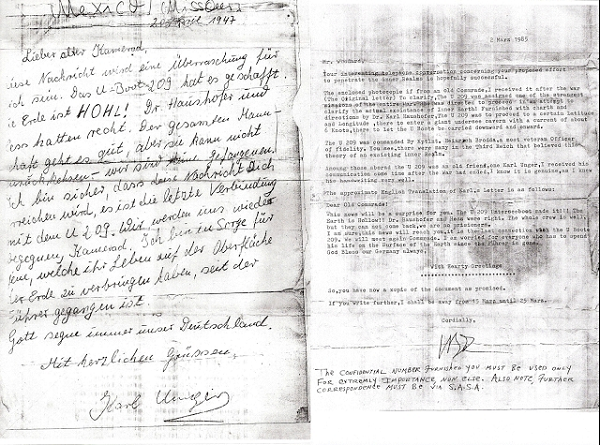 Mexico, Missouri
1947
Lieber alter Kamerad,
diese Nachricht wird eine überraschung für
Dich sein. Das U-Boot 209 hat es geschafft.
Die Erde ist HOHL! Dr. Haushofer und
Hess hatten recht. Der gesamten Mann-
schaft geht es gut, aber sie kann nicht
wir sind Gefangenen.
Ich bin sicher, dass Nachricht Dich
erreichen wird, es ist die letzte Verbindung
mit dem U 209. Wir werden uns wieder
begegnen, Kamerad. Ich bin in Sorge für
jene, welche ihr Leben auf der Oberfläche
der Erde zu verbringen haben, seit der
Führer gegangen ist.
Gott segne immer unser Deutschland.
Mit herzlichen Grüssen,
Karl Unger
2 Mars 1985
Mr. Woodard,
Your interesting telephone conversation concerning your proposed effort
to penetrate the inner Realms is hopefully successful.
The enclosed photocopie if from an old Comerade, I received it after the war
(The Original Letter) To clarify, The U 209 was assigned one of the strangest
missions of the entire war. She was directed to proceed in an attempt to
clarify the actual existence of Inner World. Furnished with charts and
directions by Dr. Karl Haushofer, The U 209 was to proceed to a certain Latitude
and Longitude, there to enter an underwater cavern with a current of about
6 Knots, there to let the U Boote be carried downward and onward.
The U 209 was commanded by Kptlnt. Heinrich Brodda, a most veteran Officer
of fidelity. You see, there were many in the Third Reich that believed this
theory of an existing inner Realm.
Among those aboard the U 209 was an old friend, one Karl Unger, I received his
communication some time after the war had ended, I know it is genuine, as I knew
his handwriting very well.
The approximate English Translation of Karl,s Letter is as follows:
Dear Old Comerade!
This news will be a surprise for you. The U 209 made it!!! The
Earth is Hollow!! Dr. Haushofer and Hess were right. The whole crew is well
but they can not come back, we are no prisoners.
I am sure, this news will reach you, it is the last connection with the U Boote
209. We will meet again Comerade. I am worried for everyone who has to spend
his life on the Surface of the Earth since the Führer is gone.
God Bless our Germany always.
With Hearty Greetings
So, you have now a copie of the document as promised.
If you write further, I shall be away from 15 Mars until 25 Mars.
Cordially,
THE CONFIDENTIAL NUMBER FURNISHED YOU MUST BE USED ONLY
FOR EXTREMLY IMPORTANCE, NON ELSE. ALSO NOTE, FURTHER
CORRESPONDENCE MUST BE VIA S.A.S.A.